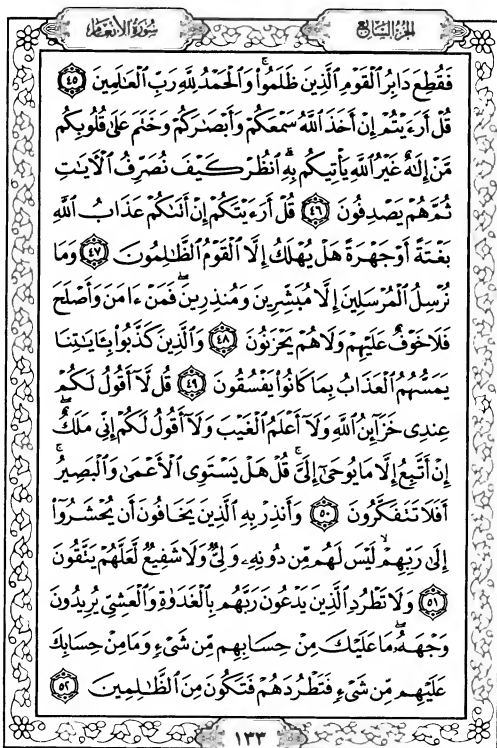 سُورَةُ الأَنْعَامِ الجُزْءُ السَّابِعُ
فَقُطِعَ دَابِرُ ٱلْقَوْمِ ٱلَّذِينَ ظَلَمُوا۟ ۚ وَٱلْحَمْدُ لِلَّهِ رَبِّ ٱلْعَٰلَمِينَ ٤٥
قُلْ أَرَءَيْتُمْ إِنْ أَخَذَ ٱللَّهُ سَمْعَكُمْ وَأَبْصَٰرَكُمْ وَخَتَمَ عَلَىٰ قُلُوبِكُم
مَّنْ إِلَٰهٌ غَيْرُ ٱللَّهِ يَأْتِيكُم بِهِ ۗ ٱنظُرْ كَيْفَ نُصَرِّفُ ٱلْءَايَٰتِ
ثُمَّ هُمْ يَصْدِفُونَ ٤٦ قُلْ أَرَءَيْتَكُمْ إِنْ أَتَىٰكُمْ عَذَابُ ٱللَّهِ
بَغْتَةً أَوْ جَهْرَةً هَلْ يُهْلَكُ إِلَّا ٱلْقَوْمُ ٱلظَّٰلِمُونَ ٤٧ وَمَا
نُرْسِلُ ٱلْمُرْسَلِينَ إِلَّا مُبَشِّرِينَ وَمُنذِرِينَ ۖ فَمَنْ ءَامَنَ وَأَصْلَحَ
فَلَا خَوْفٌ عَلَيْهِمْ وَلَا هُمْ يَحْزَنُونَ ٤٨ وَٱلَّذِينَ كَذَّبُوا۟ بِـَٔايَٰتِنَا
يَمَسُّهُمُ ٱلْعَذَابُ بِمَا كَانُوا۟ يَفْسُقُونَ ٤٩ قُل لَّآ أَقُولُ لَكُمْ
عِندِى خَزَآئِنُ ٱللَّهِ وَلَآ أَعْلَمُ ٱلْغَيْبَ وَلَآ أَقُولُ لَكُمْ إِنِّى مَلَكٌ ۖ
إِنْ أَتَّبِعُ إِلَّا مَا يُوحَىٰٓ إِلَىَّ ۚ قُلْ هَلْ يَسْتَوِى ٱلْأَعْمَىٰ وَٱلْبَصِيرُ ۚ
أَفَلَا تَتَفَكَّرُونَ ٥٠ وَأَنذِرْ بِهِ ٱلَّذِينَ يَخَافُونَ أَن يُحْشَرُوٓا۟
إِلَىٰ رَبِّهِمْ ۙ لَيْسَ لَهُم مِّن دُونِهِۦ وَلِىٌّ وَلَا شَفِيعٌ لَّعَلَّهُمْ يَتَّقُونَ
٥١ وَلَا تَطْرُدِ ٱلَّذِينَ يَدْعُونَ رَبَّهُم بِٱلْغَدَوٰةِ وَٱلْعَشِىِّ يُرِيدُونَ
وَجْهَهُۥ ۖ مَا عَلَيْكَ مِنْ حِسَابِهِم مِّن شَىْءٍ وَمَا مِنْ حِسَابِكَ
عَلَيْهِم مِّن شَىْءٍ فَتَطْرُدَهُمْ فَتَكُونَ مِنَ ٱلظَّٰلِمِينَ ٥٢
١٣٣